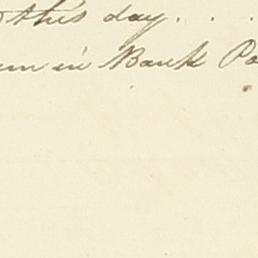 this day . . .
in Bank